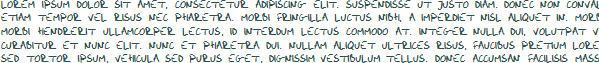 LOREM IPSUM DOLOR SIT AMET, CONSECTETUR ADIPISCING ELIT. SUSPENDISSE UT JUSTO DIAM. DONEC NON CONVAL
ETIAM TEMPOR VEL RISUS NEC PHARETRA. MORBI FRINGILLA LUCTUS NIBH, A IMPERDIET NISL ALIQUET IN. MORB
MORBI HENDRERIT ULLAMCORPER LECTUS, ID INTERDUM LECTUS COMMODO AT. INTEGER NULLA DUI, VOLUTPAT V
CURABITUR ET NUNC ELIT. NUNC ET PHARETRA DUI. NULLAM ALIQUET ULTRICES RISUS, FAUCIBUS PRETIUM LORE
SED TORTOR IPSUM, VEHICULA SED PURUS EGET, DIGNISSIM VESTIBULUM TELLUS. DONEC ACCUMSAN FACILISIS MASS